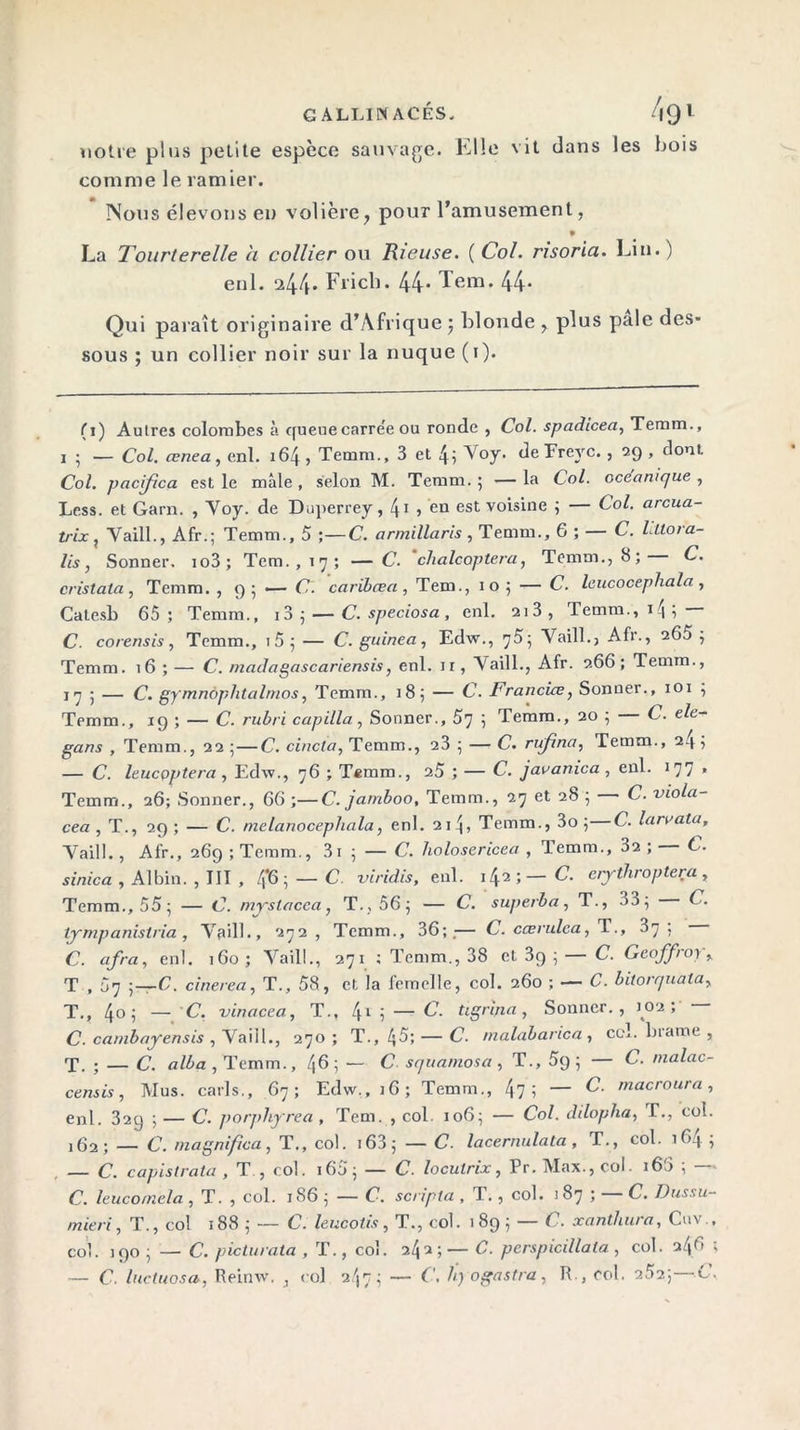 GALLINACÉS. 491
notre plus petite espèce sauvage. Elle vit dans les bois
comme le ramier.
Nous élevons en volière, pour l'amusement,
La Tourterelle à collier ou Rieuse. (Col. risoria. Lin.)
enl. 244. Frich. 44. Tem. 44.
Qui paraît originaire d'Afrique ; blonde, plus pâle des-
sous ; un collier noir sur la nuque (1).
(1) Autres colombes à queue carrée ou ronde, Col. spadicea, Temm.,
1 ; — Col. ænea, enl. 164, Temm., 3 et 4; Voy. de Freyc., 29, dont
Col. pacifica est le mâle, selon M. Temm. ; — la Col. océanique,
Less. et Garn., Voy. de Duperrey, 41, en est voisine ; — Col. arcua-
trix, Vaill., Afr.; Temm., 5 ;—C. armillaris, Temm., 6 ; — C. littora-
lis, Sonner. 103 ; Tem., 17 ; — C. chalcoptera, Temm., 8 ; — C.
cristata, Temm., 9 ; — C. caribæa, Tem., 10 ; — C. leucocephala,
Catesb 65 ; Temm., 13 ; — C. speciosa, enl. 213, Temm., 14 ; —
C. corensis, Temm., 15 ; — C. guinea, Edw., 75; Vaill., Afr., 265 ;
Temm. 16 ; — C. madagascariensis, enl. 11, Vaill., Afr. 266 ; Temm.,
17 ; — C. gymnophtalmos, Temm., 18 ; — C. Franciæ, Sonner., 101 ;
Temm., 19 ; — C. rubri capilla, Sonner., 57 ; Temm., 20 ; — C. ele-
gans, Temm., 22 ;—C. cincta, Temm., 23 ; — C. rufina, Temm., 24 ;
— C. leucoptera, Edw., 76 ; Temm., 25 ; — C. javanica, enl. 177,
Temm., 26; Sonner., 66 ;—C. jamboo, Temm., 27 et 28 ; — C. viola-
cea, T., 29 ; — C. melanocephala, enl. 214, Temm., 30 ;—C. larvata,
Vaill., Afr., 269 ; Temm., 31 ; — C. holosericea, Temm., 32 ; — C.
sinica, Albin., III, 46 ; — C. viridis, enl. 142 ; — C. erythroptera,
Temm., 55 ; — C. mystacea, T., 56 ; — C. superba, T., 33 ; — C.
tympanistria, Vaill., 272, Temm., 36 ; — C. cærulea, T., 37 ; —
C. afra, enl. 160 ; Vaill., 271 ; Temm., 38 et 39 ; — C. Geoffroy,
T, 57 ;—C. cinerea, T., 58, et la femelle, col. 260 ; — C. bitorquata,
T., 40 ; — C. vinacea, T., 41 ; — C. tigrina, Sonner., 102 ; —
C. cambayensis, Vaill., 270 ; T., 45; — C. malabarica, col. brame,
T. ; — C. alba, Temm., 46 ; — C. squamosa, T., 59 ; — C. malac-
censis, Mus. carls., 67 ; Edw., 16 ; Temm., 47 ; — C. macroura,
enl. 329 ; — C. porphyrea, Tem., col. 106; — Col. dilopha, T., col.
162 ; — C. magnifica, T., col. 163 ; — C. lacernulata, T., col. 164 ;
— C. capistrata, T., col. 165 ; — C. locutrix, Pr. Max., col. 166 ; —
C. leucomela, T., col. 186 ; — C. scripta, T., col. 187 ; — C. Dussu-
mieri, T., col 188 ; — C. leucotis, T., col. 189 ; — C. xanthura, Cuv.,
col. 190 ; — C. picturata, T., col. 242 ; — C. perspicillata, col. 246 ;
— C. luctuosa, Reinw., col 247 ; — C. hyogastra, R., col. 252;—C.